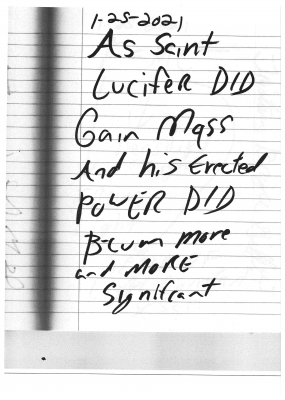 1-25-2021
As Saint
Lucifer DID
Gain Mass
And his Erected
POWER DID
Becum more
and MORE
Synifcant